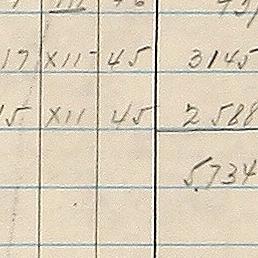 17 XII 45 3145
15 XII 45 2588
5.734